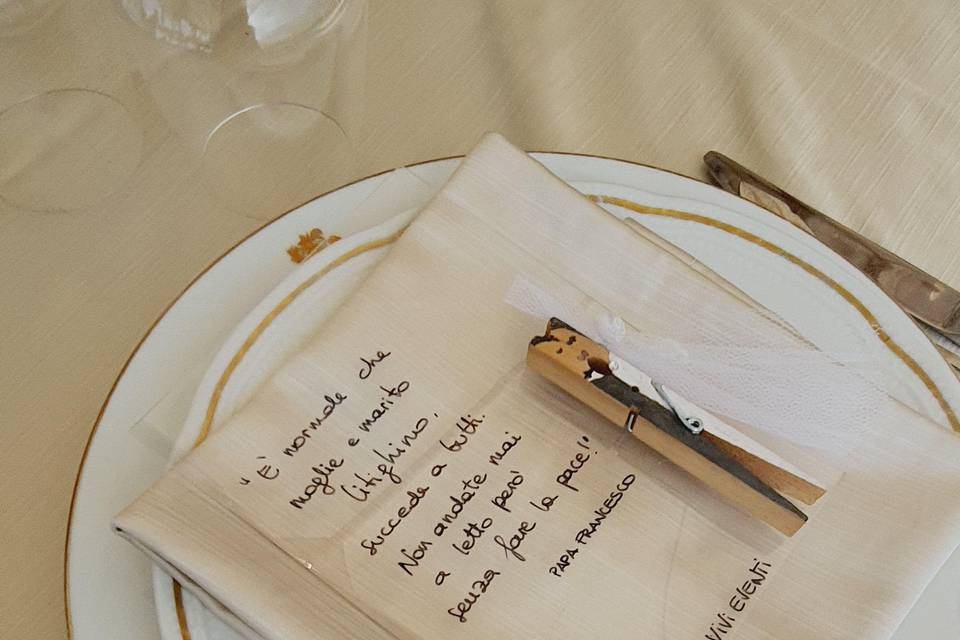 "È normale che
moglie e marito
litighino,
succede a tutti.
Non andate mai
a letto però
senza fare la pace!"
PAPA FRANCESCO
VIVI EVENTI